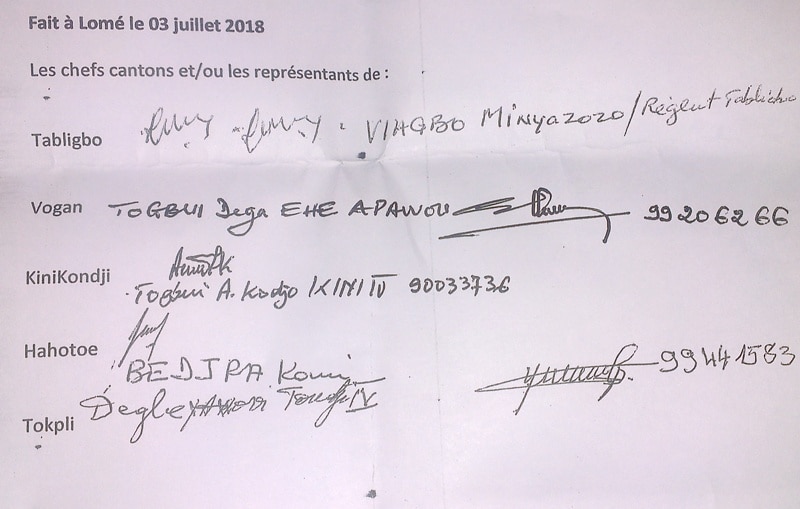 Fait à Lomé le 03 juillet 2018
Les chefs cantons et/ou les représentants de :
Tabligbo VIAGBO Minyazozo/Régent Tabligbo
Vogan TOGBUI Dega EHE APAWOU 99206266
KiniKondji
Togbui A. Kodjo KINI IV 90033736
Hahotoe
BEDJRA Komi 99441583
Tokpli